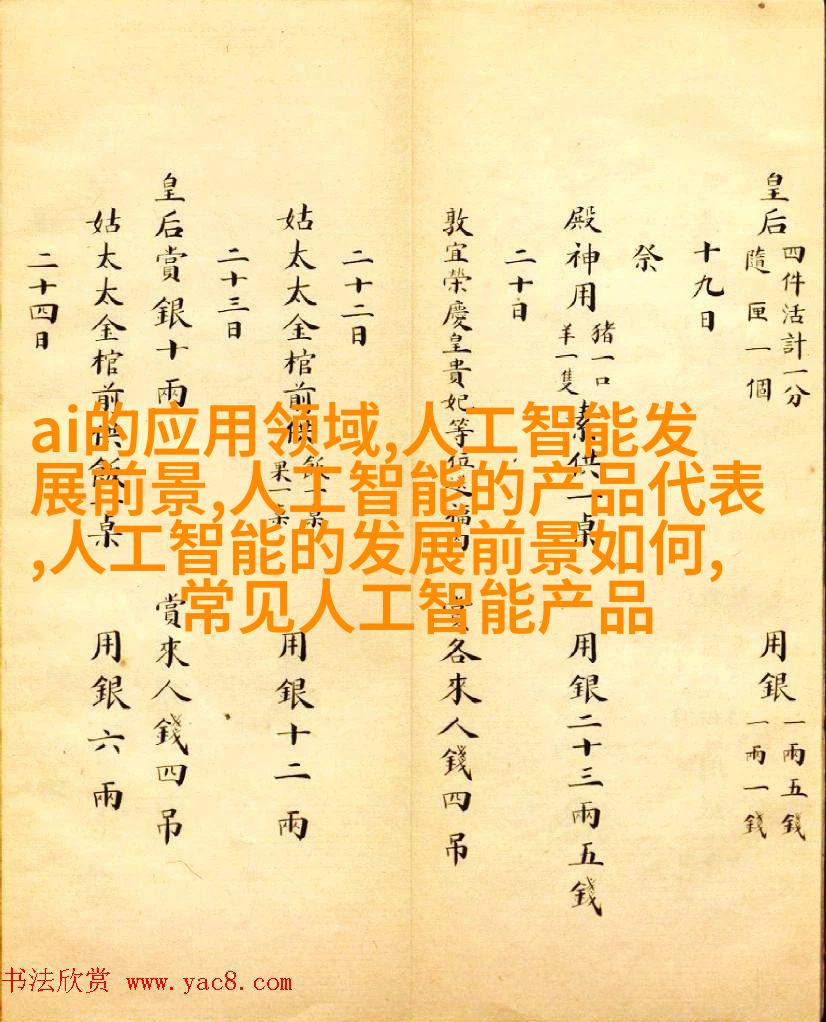 皇后 四件活計一分 隨匣一個 用銀 一兩五錢 一兩一錢
十九日
祭
殿神用 猪一口 羊一隻 素供一桌 用銀二十三兩五錢
二十日
敦宜榮慶皇貴妃等位 賞各來人錢四吊
二十二日
姑太太金棺前供 飯一桌 果一桌 用銀十二兩
二十三日
皇后賞銀十兩 賞來人錢四吊
姑太太金棺前供飯一桌 用銀六兩
二十四日
ai的应用领域,人工智能发
展前景,人工智能的产品代表
,人工智能的发展前景如何,
常见人工智能产品
书法欣赏 www.yac8.com